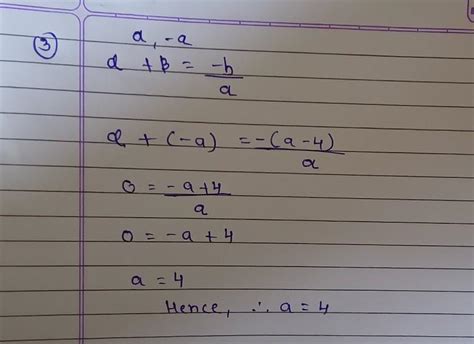 ③ α, -α
α + β = -b/a
α + (-α) = -(a-4)/a
0 = -a+4/a
0 = -a + 4
a = 4
Hence, ∴ a = 4